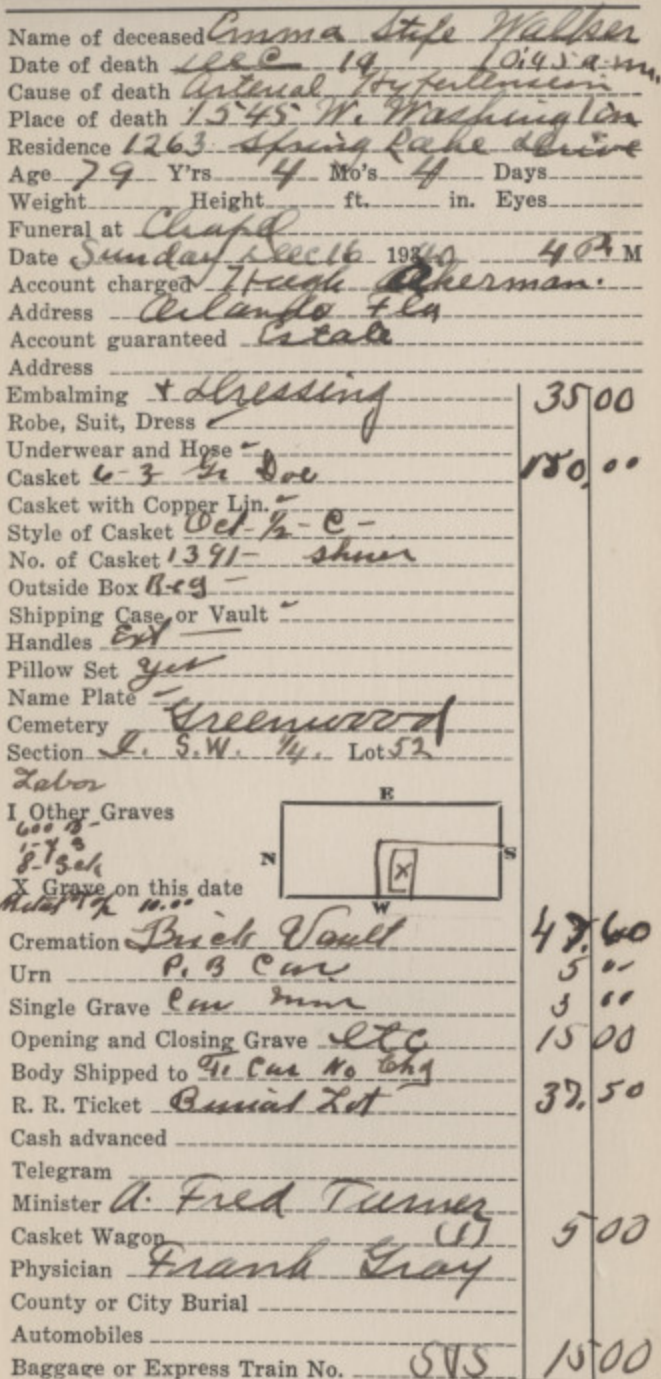 Name of deceased Emma Stife Walker
Date of death Dec 14 10:45 a.m.
Cause of death Arterial Hypertension
Place of death 1545 W. Washington
Residence 1263 Spring Lake Drive
Age 79 Y'rs 4 Mo's 4 Days
Weight Height ft. in. Eyes
Funeral at Chapel
Date Sunday Dec 16 1940 4 P. M
Account charged Hugh Akerman.
Address Orlando Fla
Account guaranteed Estate
Address
Embalming + Dressing 35 00
Robe, Suit, Dress -
Underwear and Hose -
Casket 6-3 Gr Doe 150.00
Casket with Copper Lin. -
Style of Casket Oct - 1/2 - C -
No. of Casket 1391-
Outside Box Reg -
Shipping Case or Vault -
Handles Ext
Pillow Set yes
Name Plate -
Cemetery Greenwood
Section I. S.W. 1/4. Lot 52
Labor
E
I Other Graves
600 B -
N X S
X Grave on this date
W
Metal Top 10.00
Cremation Brick Vault 47.60
Urn P. B Car 5 00
Single Grave Car 5 00
Opening and Closing Grave etc 15 00
Body Shipped to Car No Chg
R. R. Ticket Burial Lot 37.50
Cash advanced
Telegram
Minister A. Fred Turner
Casket Wagon (1) 5 00
Physician Frank Gray
County or City Burial
Automobiles
Baggage or Express Train No. SVS 15 00